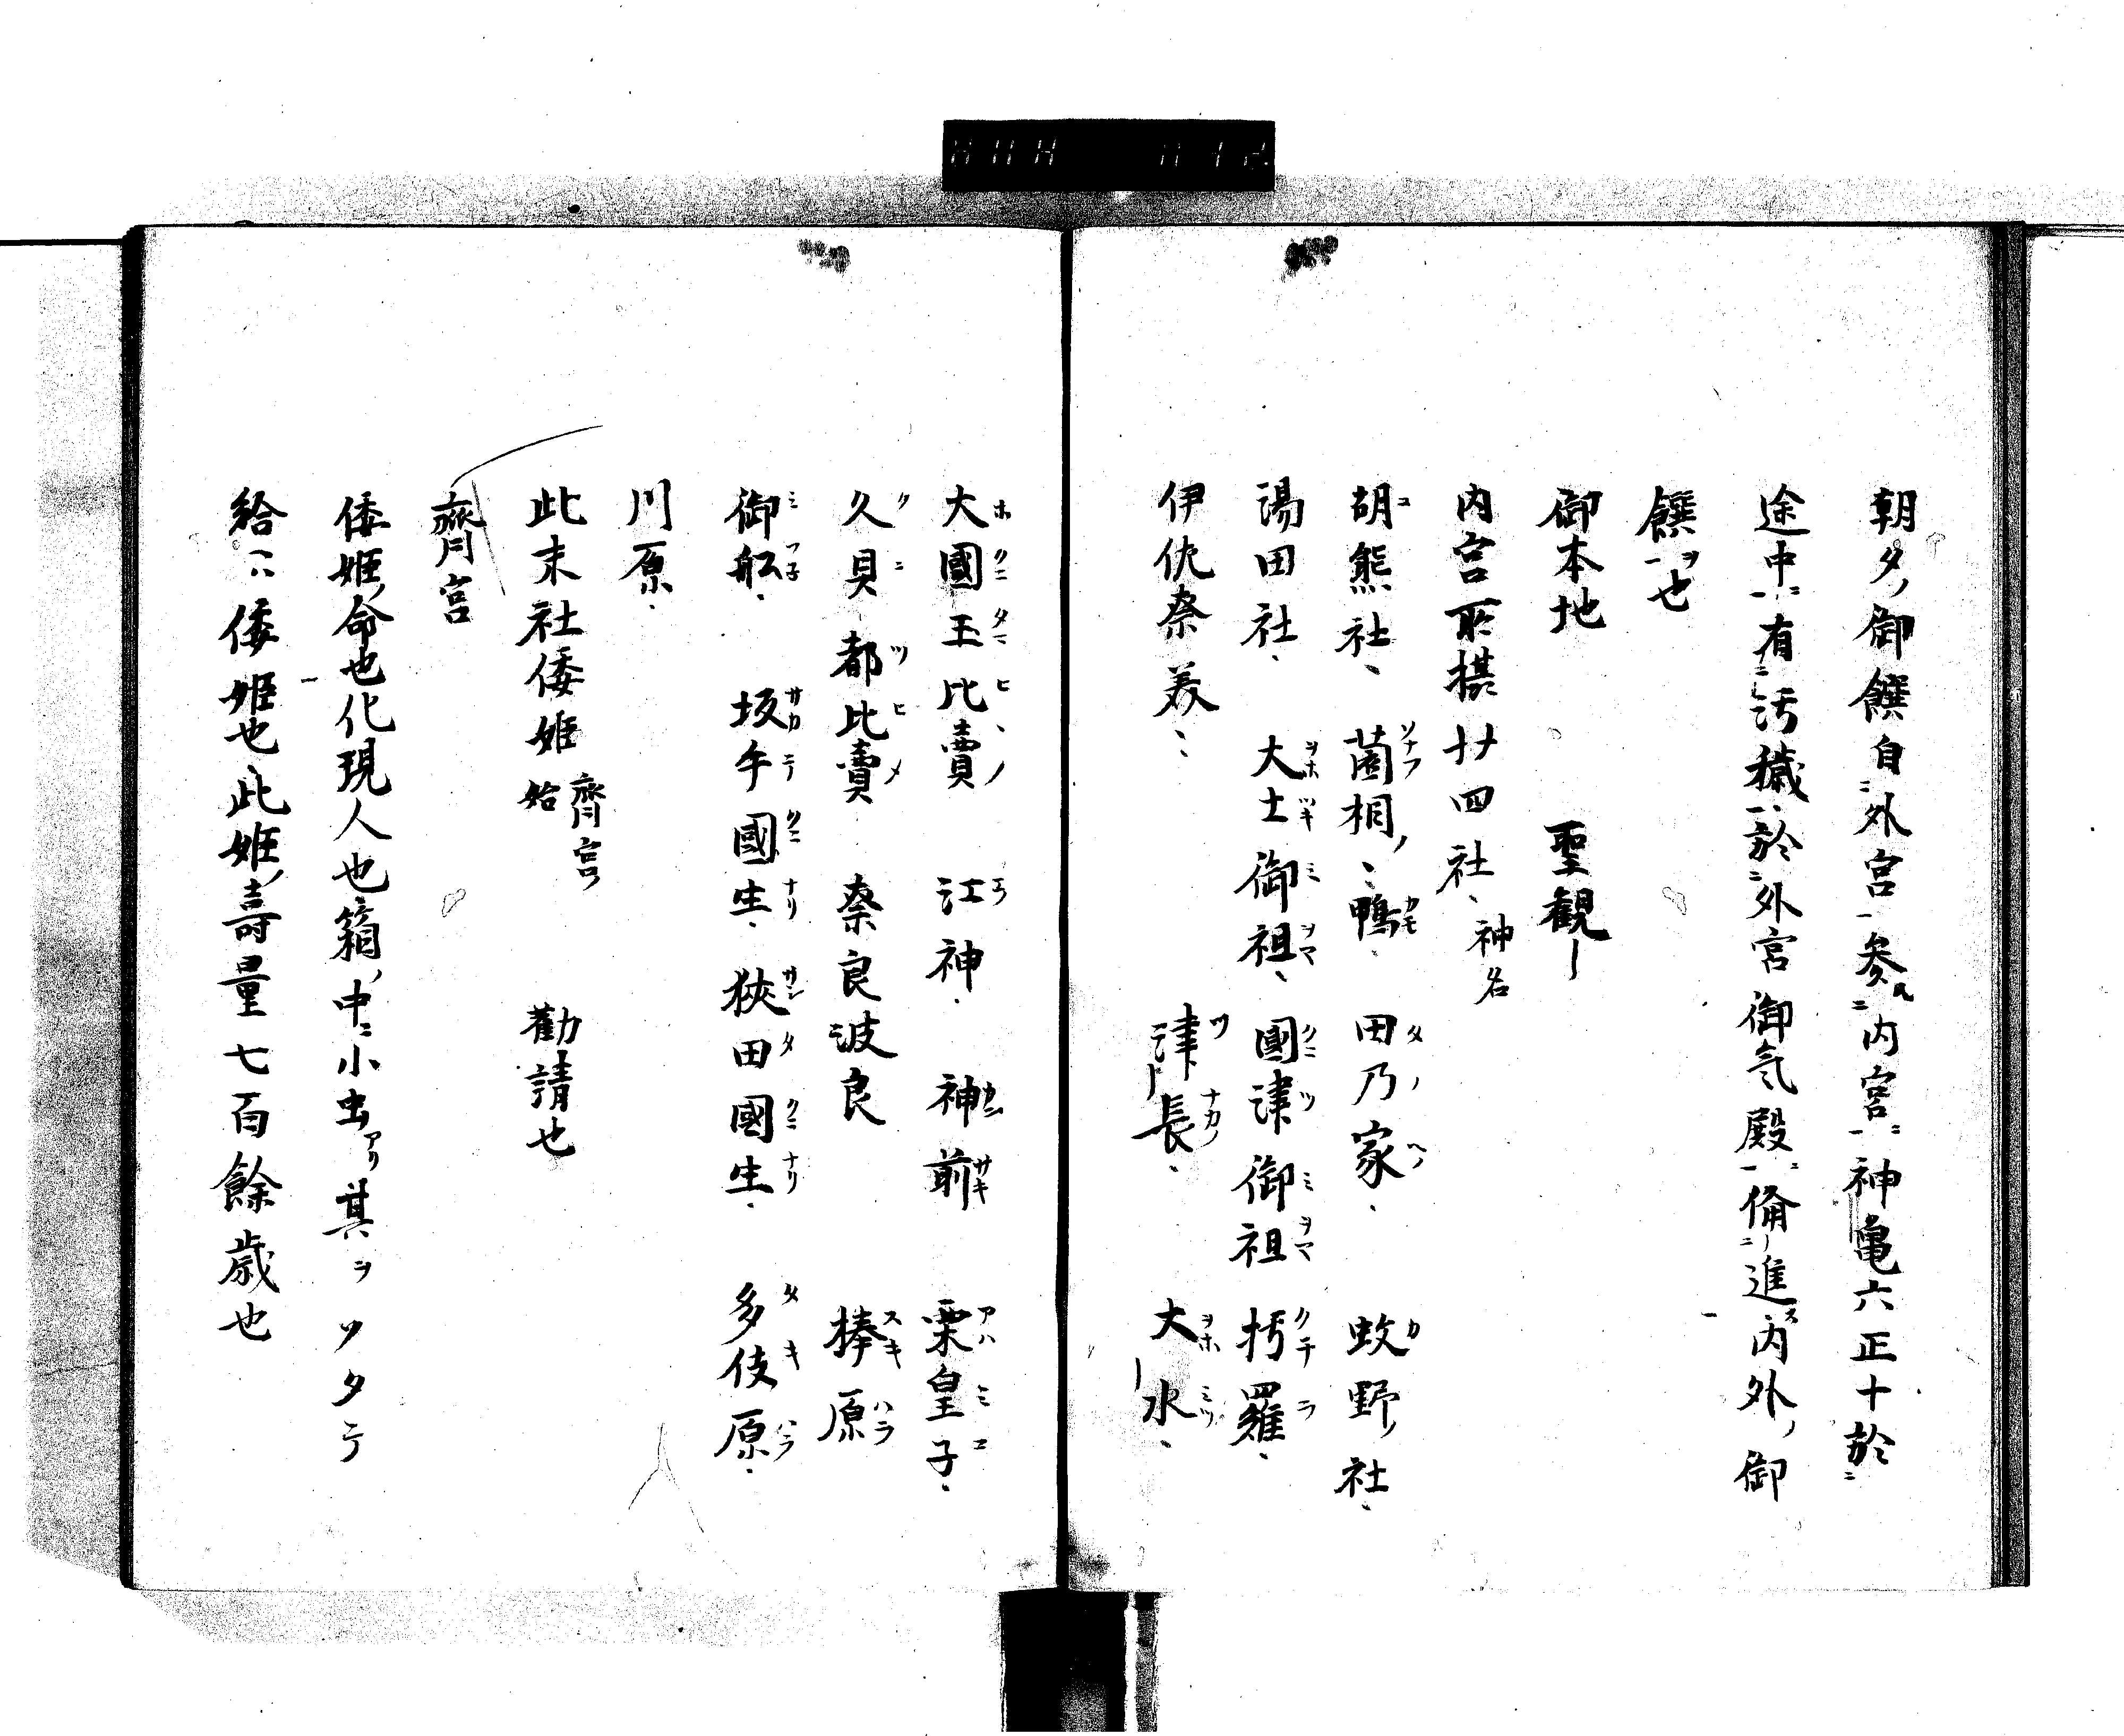 朝夕ノ御饌自外宮参内宮神亀六正十於
途中有汚穢於外宮御気殿備進内外ノ御
饌ヲ也
御本地　聖観ー
内宮所摂廿四社、神名
胡熊社、薗相ノ、鴨、田乃家、蚊野ノ社、
湯田社、大土御祖、國津御祖　朽羅、
伊佐奈美、津長、大水、
大國玉比賣　江神、神前　栗皇子、
久具都比賣　奈良波良　捧原
御舩、坂手國生、狭田國生、多伎原、
川原、
此末社倭姫　齊宮ノ始　勧請也
齊宮
倭姫ノ命也化現人也箱ノ中ニ小虫アリ其ヲソタテ
給ヘハ倭姫也此姫ノ壽量七百餘歳也